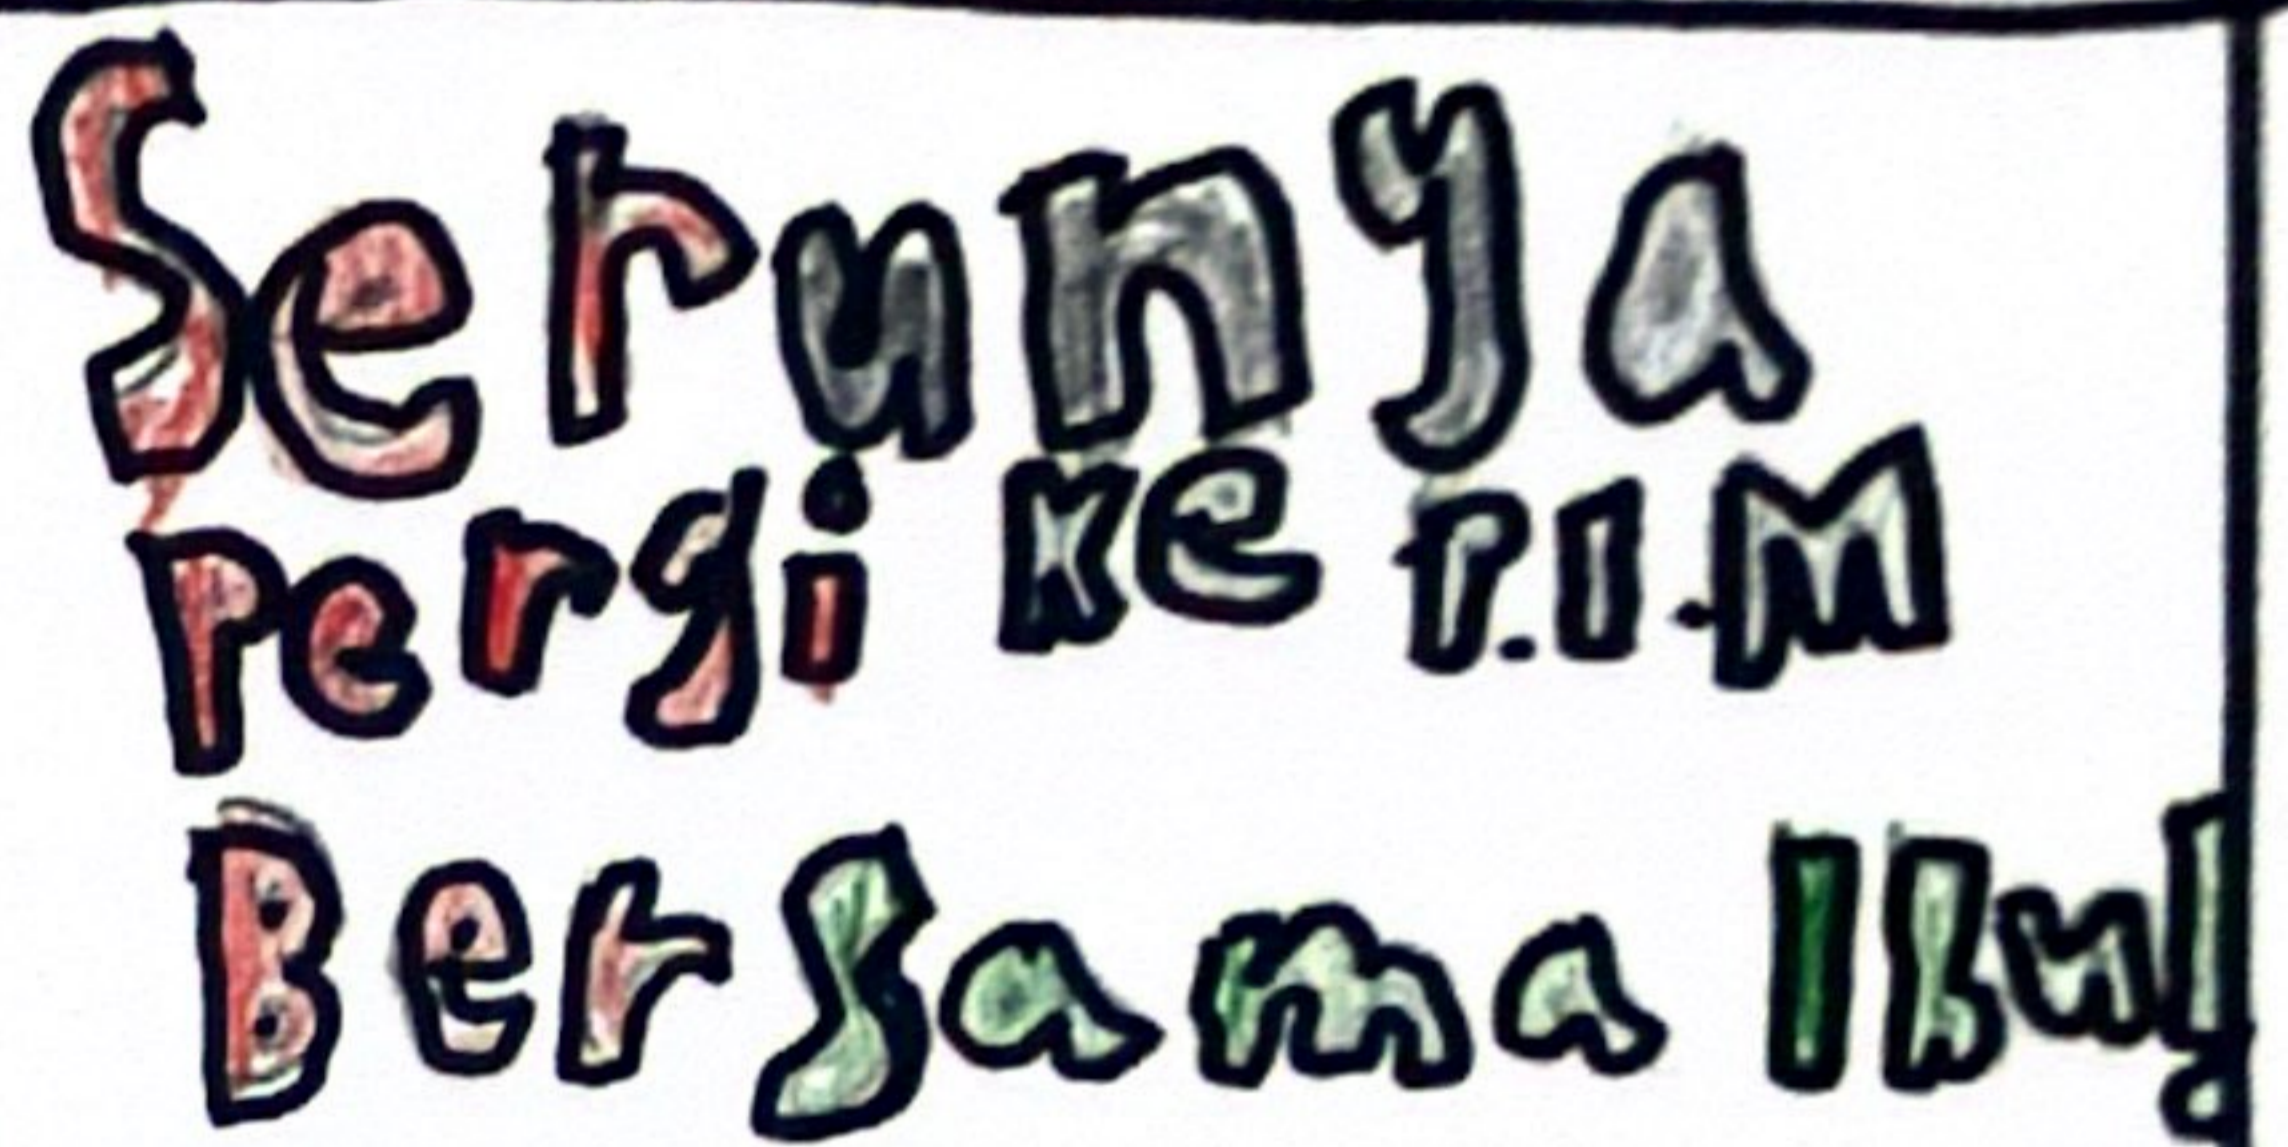 Serunya
Pergi ke P.I.M
Bersama IBu!